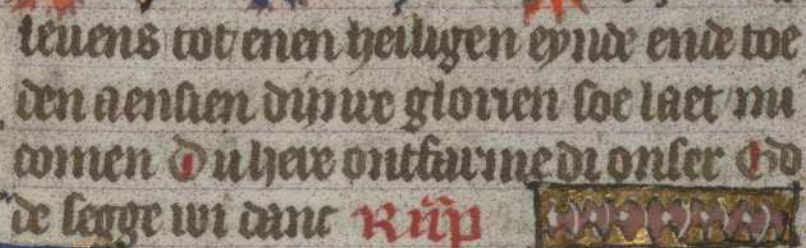 leuens tot enen heiligen eynde ende toe
den aensien dijnre glorien soe laet mi
comen Du here ontfarme di onser Go
de segge wi danc